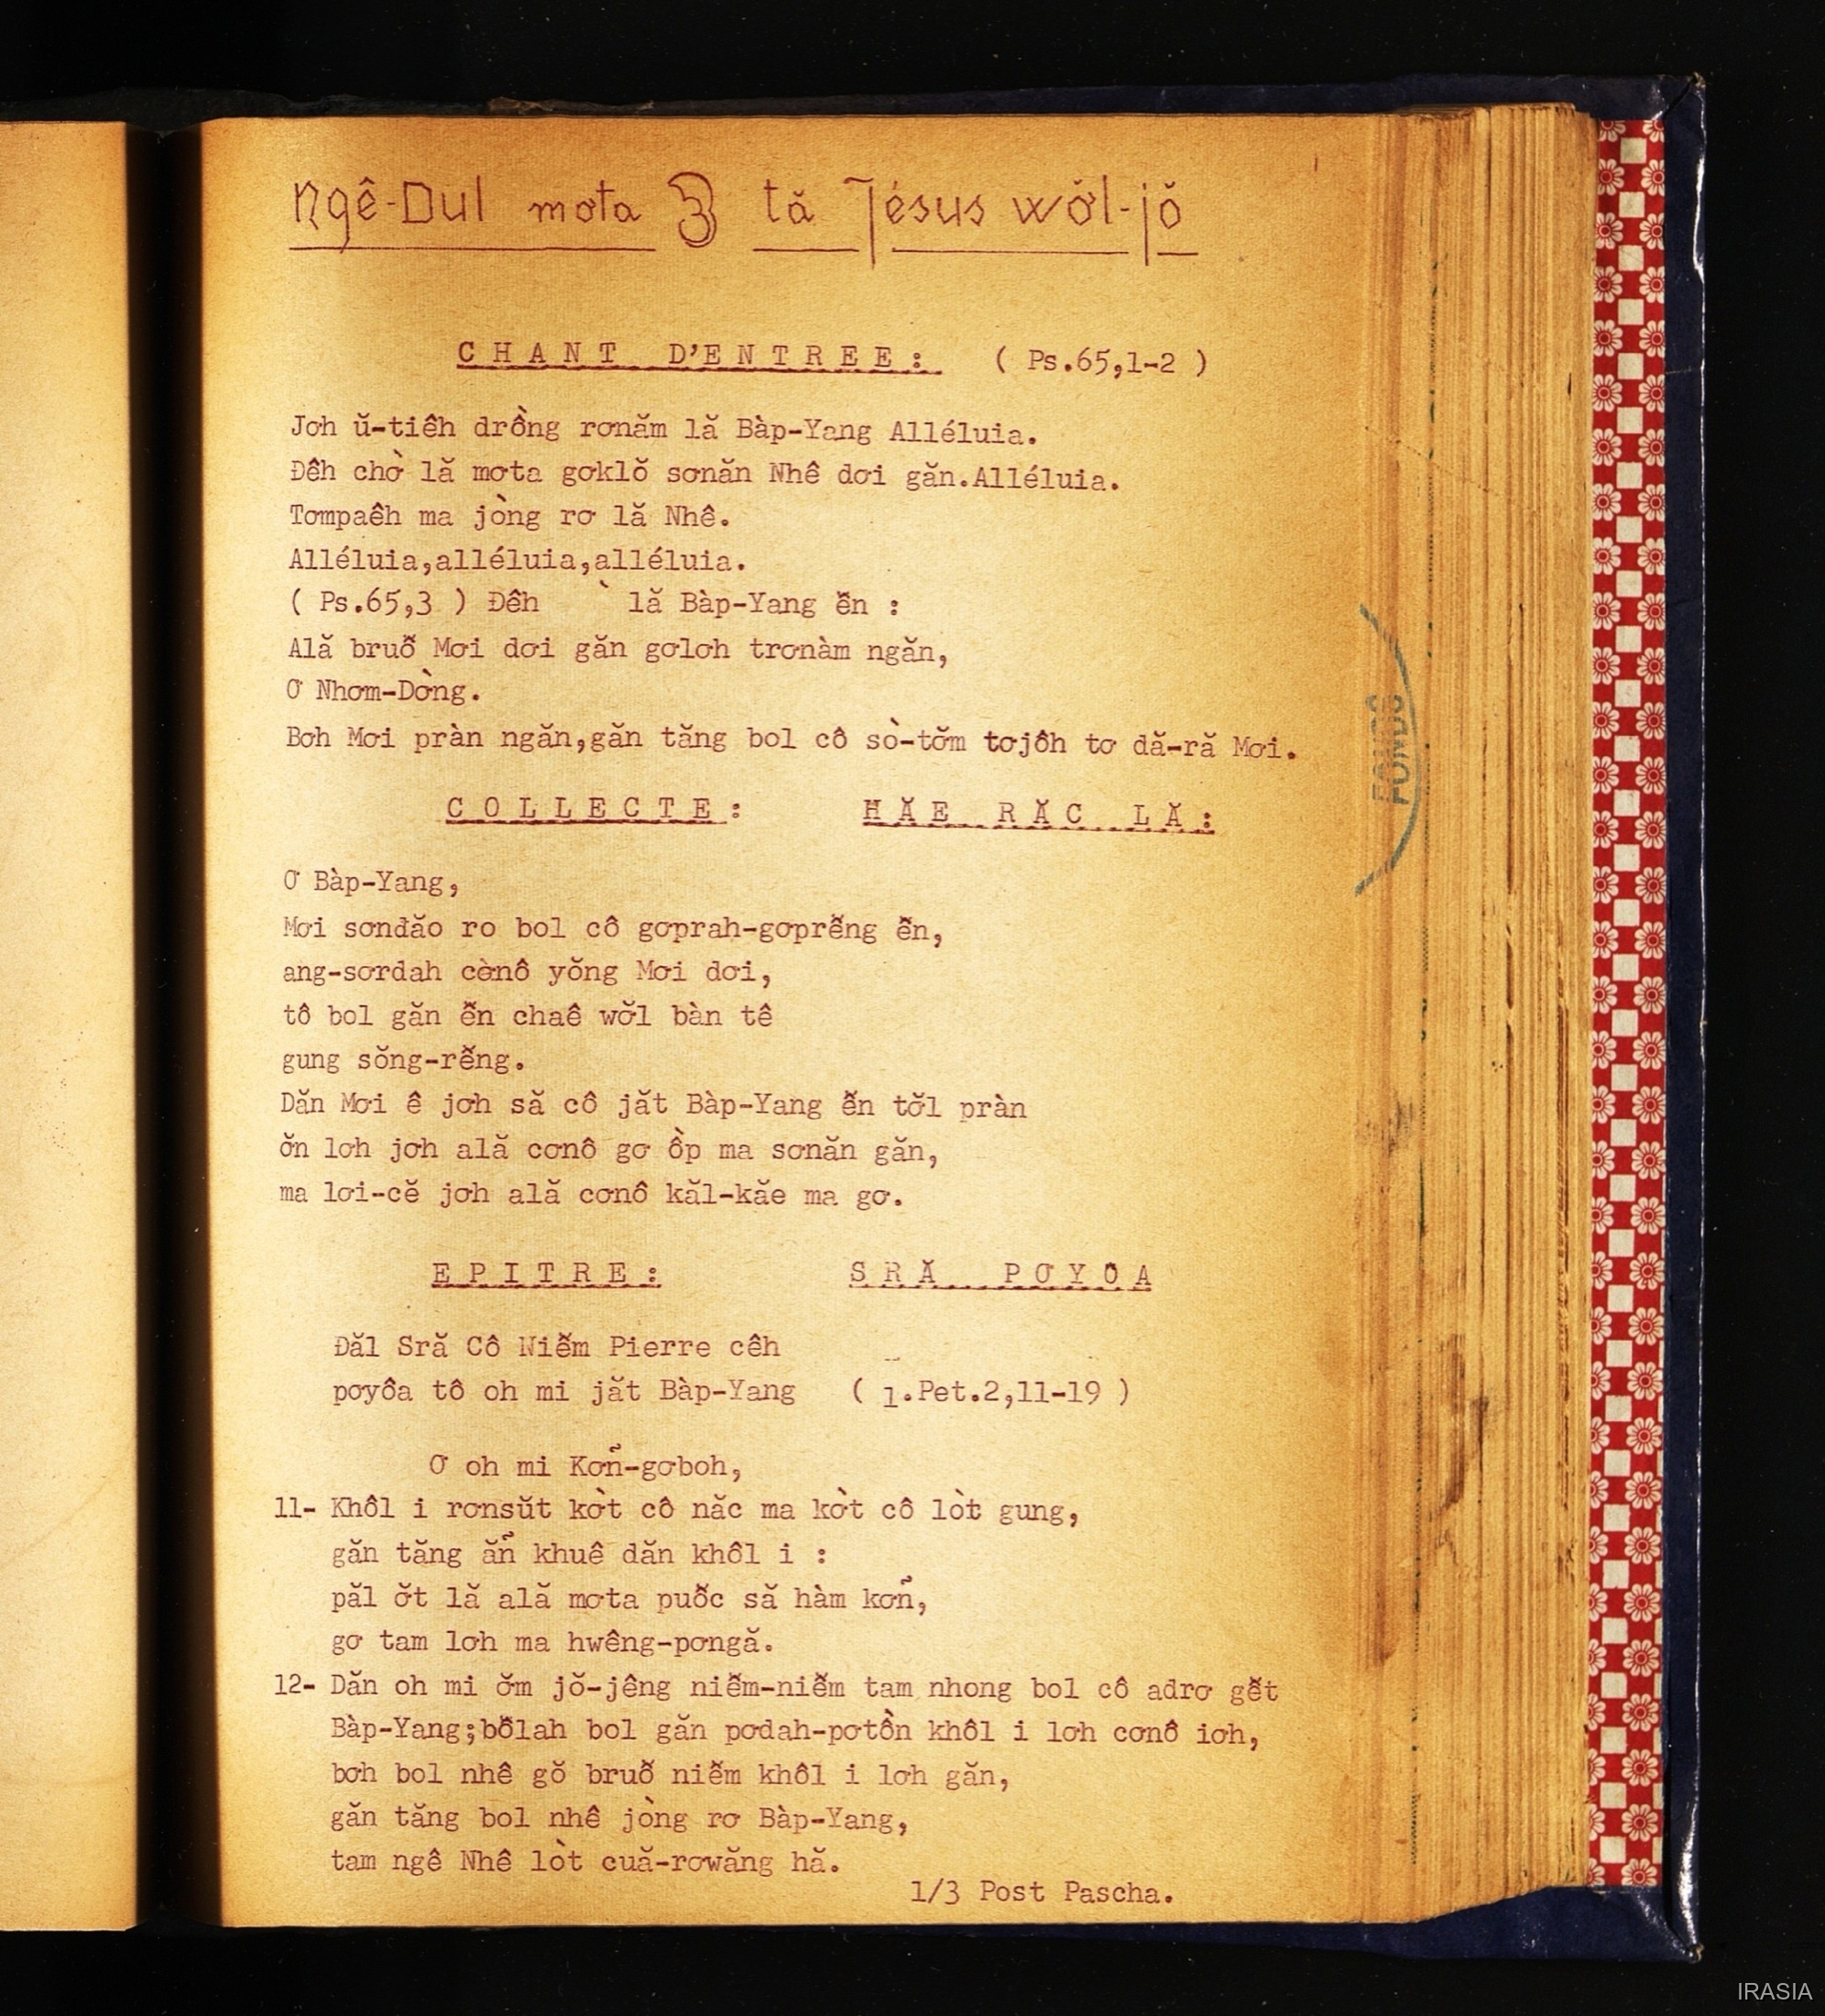 Ngê-Dul mơta 3 tă Jésus wơ̆l-jŏ
CHANT D'ENTREE: ( Ps.65,1-2 )
Jơh ŭ-tiêh drồng rơnăm lă Bàp-Yang Alléluia.
Đêh chờ lă mơta gơklŏ sơnăn Nhê dơi găn.Alléluia.
Tơmpaêh ma jòng rơ lă Nhê.
Alléluia,alléluia,alléluia.
( Ps.65,3 ) Đêh ` lă Bàp-Yang ê̆n :
Ală bruô̆ Mơi dơi găn gơlơh trơnàm ngăn,
Ơ Nhơm-Dờng.
Bơh Mơi pràn ngăn,găn tăng bol cô sò-tơ̆m tơjôh tơ dă-ră Mơi.
COLLECTE: HĂE RĂC LĂ:
Ơ Bàp-Yang,
Mơi sơnđăo ro bol cô gơprah-gơprê̆ng ê̆n,
ang-sơrdah cờnô yŏng Mơi dơi,
tô bol găn ê̆n chaê wơ̆l bàn tê
gung sŏng-rê̆ng.
Dăn Mơi ê jơh să cô jăt Bàp-Yang ê̆n tơ̆l pràn
ơ̆n lơh jơh ală cơnô gơ ồp ma sơnăn găn,
ma lơi-cĕ jơh ală cơnô kăl-kăe ma gơ.
EPITRE: SRĂ PƠYÔA
Đăl Sră Cô Niê̆m Pierre cêh
pơyôa tô oh mi jăt Bàp-Yang ( 1.Pet.2,11-19 )
Ơ oh mi Kơn̆-gơboh,
11- Khôl i rơnsŭt kờt cô năc ma kờt cô lòt gung,
găn tăng ăn̆ khuê dăn khôl i :
păl ơ̆t lă ală mơta puô̆c să hàm kơn̆,
gơ tam lơh ma hwêng-pơngă.
12- Dăn oh mi ơ̆m jŏ-jêng niê̆m-niê̆m tam nhong bol cô adrơ gê̆t
Bàp-Yang;bô̆lah bol găn pơdah-pơtồn khôl i lơh cơnô iơh,
bơh bol nhê gŏ bruô̆ niê̆m khôl i lơh găn,
găn tăng bol nhê jòng rơ Bàp-Yang,
tam ngê Nhê lòt cuă-rơwăng hă.
1/3 Post Pascha.
FONDS
IRASIA